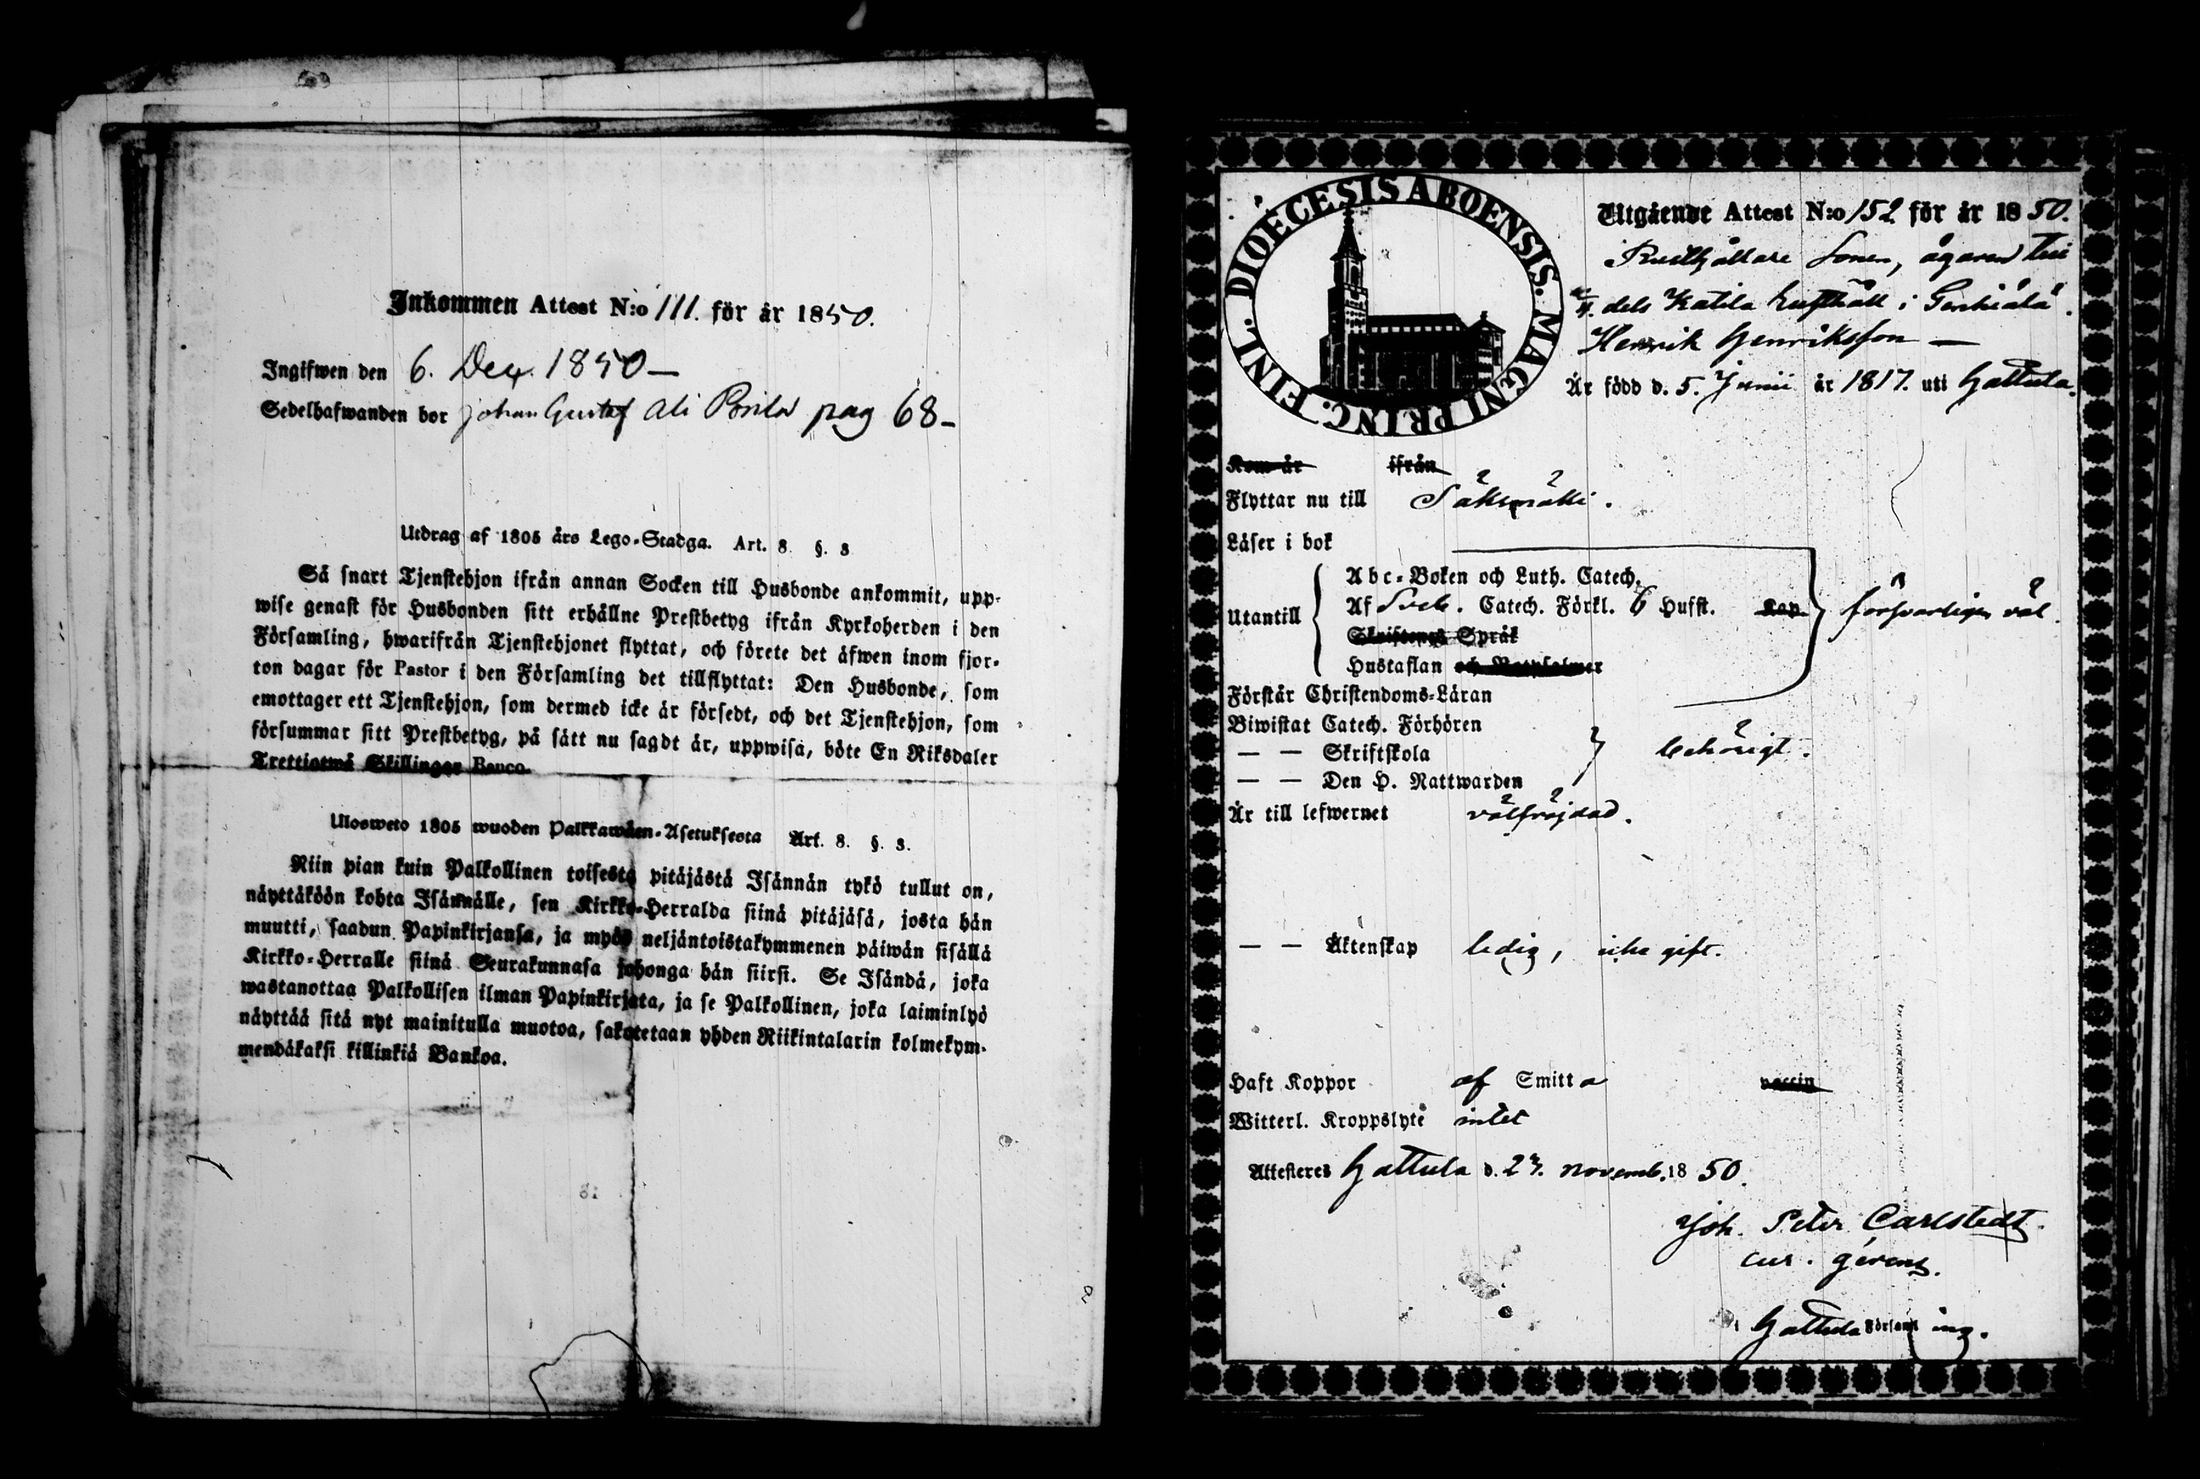 Inkommen Attest N:o 111. för år 1850.
Ingifwen den 6. Dec. 1850 —
Sedelhafwanden bor Johan Gustaf Ali pag 68 —
Utdrag af 1805 års Lego-Stadga. Art. 8. §. 3
Så snart Tjenstehjon ifrån annan Socken till Husbonde ankommit, upp-
wise genast för Husbonden sitt erhållne Prestbetyg ifrån Kyrkoherden i den
Församling, hwarifrån Tjenstehjonet flyttat, och förete det äfwen inom fjor-
ton dagar för Pastor i den Församling det tillflyttat: Den Husbonde, som
emottager ett Tjenstehjon, som dermed icke är försedt, och det Tjenstehjon, som
försummar sitt Prestbetyg, på sätt nu sagdt är, uppwisa, böte En Riksdaler
Trettiotwå Skillingar Banco.
Ulosweto 1805 wuoden Palkkawäen-Asetuksesta Art. 8. §. 3.
Niin pian kuin Palkollinen toisesta pitäjästä Isännän tykö tullut on,
näyttäköön kohta Isännälle, sen Kirkko-Herralda siinä pitäjäsä, josta hän
muutti, saadun Papinkirjansa, ja myös neljäntoistakymmenen päiwän sisällä
Kirkko-Herralle siinä Seurakunnasa johonga hän siirsi. Se Isändä, joka
wastanottaa Palkollisen ilman Papinkirjata, ja se Palkollinen, joka laiminlyö
näyttää sitä nyt mainitulla muotoa, sakotetaan yhden Riikintalarin kolmekym-
mendäkaksi killinkiä Bankoa.
DIOECESIS ABOENSIS. MAGNI PRINC. FINL.
Utgående Attest N:o 152 för år 1850.
Rusthållare Sonen, ägaren till
dels Katila Rusthåll i
Henrik Henriksson —
Är född d. 5. Junii år 1817. uti Hattula.
Kom år ifrån
Flyttar nu till Sääksmäki.
Läser i bok
Utantill
Abc-Boken och Luth. Catech.
Af Sveb. Catech. Förkl. 6 Hufst. Kap
Skriftenes Språk
Hustaflan och Botpsalmer
försvarligen väl.
Förstår Christendoms-Läran
Biwistat Catech. Förhören
— — Skriftskola
— — Den H. Nattwarden
behörigt.
Är till lefwernet välfräjdad.
— — Äktenskap ledig, icke gift.
Haft Koppor af Smitta vaccin
Witterl. Kroppslyte intet
Attesteres Hattula d. 27. novemb. 1850.
Joh. Peter Carlstedt.
cur. gerens.
i Hattula Församling.